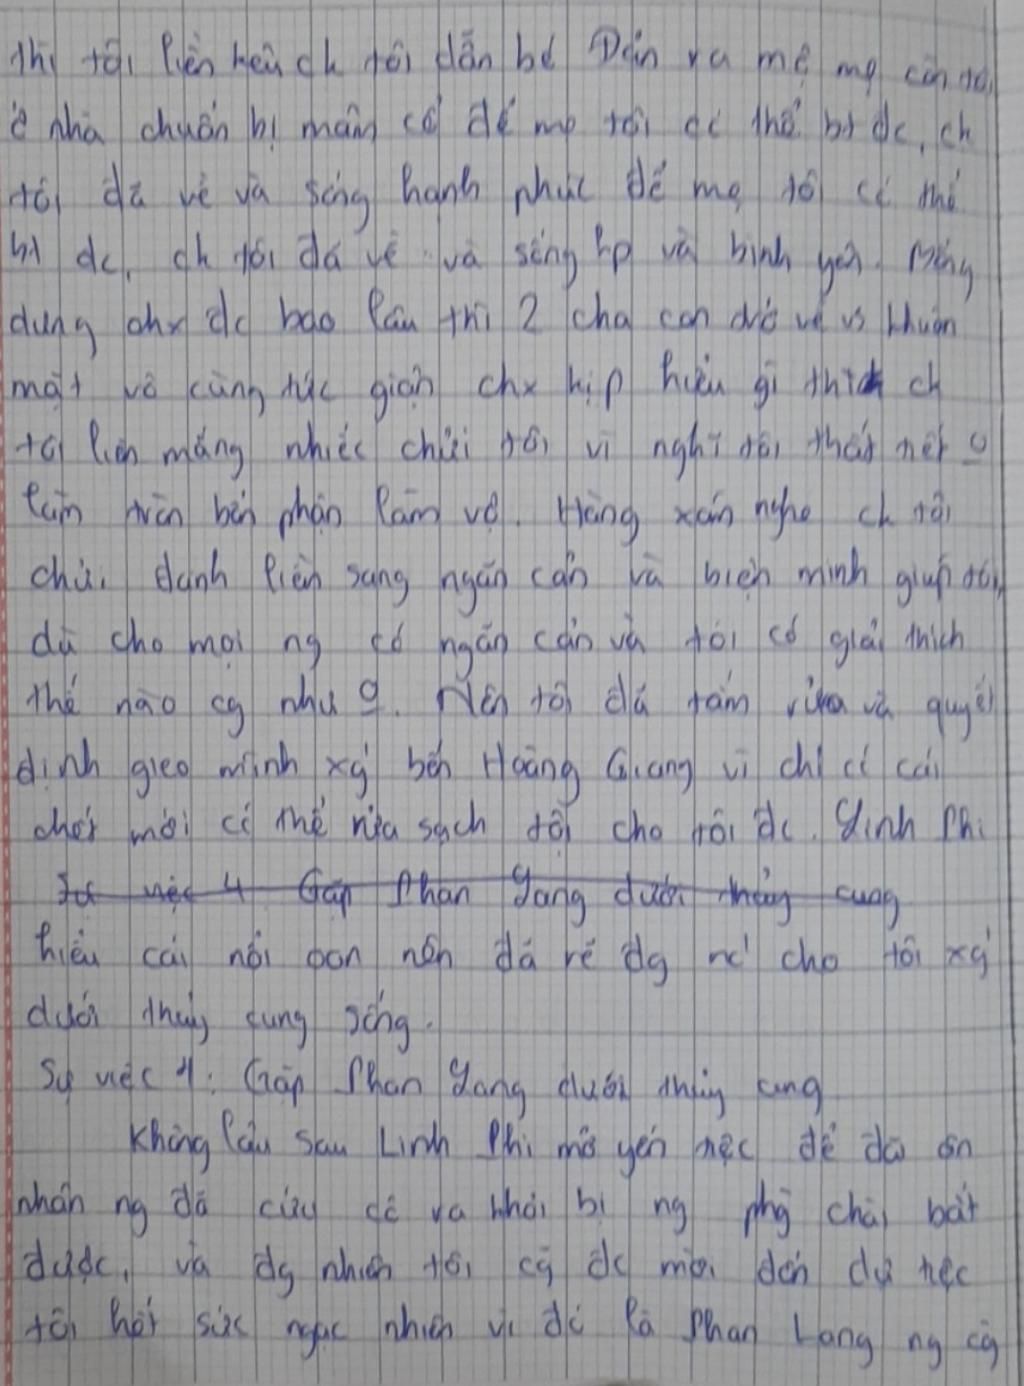 thì tôi liền kêu ch tôi dẫn bé Đản ra mộ mẹ còn tôi
ở nhà chuẩn bị mâm cỗ để mẹ tôi có thể bt đc, ch
tôi đã về và sống hạnh phúc để mẹ tôi có thể
bt đc, ch tôi đã về và sống hp và bình yên. Nhưng
dưng chx đc bao lâu thì 2 cha con trở về vs khuôn
mặt vô cùng tức giận chx kịp hiểu gì thì ch
tôi liền mắng nhiếc chửi tôi vì nghĩ tôi thất nết o
làm tròn bổn phận làm vợ. Hàng xóm nghe ch tôi
chửi đánh liền sang ngăn cản và biện minh giúp tôi,
dù cho mọi ng có ngăn cản và tôi có giải thích
thế nào cg như o. Nên tôi đã tắm rửa và quyết
định gieo mình xg bến Hoàng Giang vì chỉ có cái
chết mới có thể rửa sạch tội cho tôi đc. Linh Phi
Sự việc 4 Gặp Phan Lang dưới thủy cung
hiểu cái nỗi oan nên đã rẽ đg nc cho tôi xg
dưới thủy cung sống.
Sự việc 4: Gặp Phan Lang dưới thủy cung
Không lâu sau Linh Phi mở yến tiệc để đãi ân
nhân ng đã cứu cô ra khỏi bị ng phg chài bắt
được, và đg nhiên tôi cg đc mời đến dự tiệc
tôi hết sức ngạc nhiên vì đó là Phan Lang ng cg